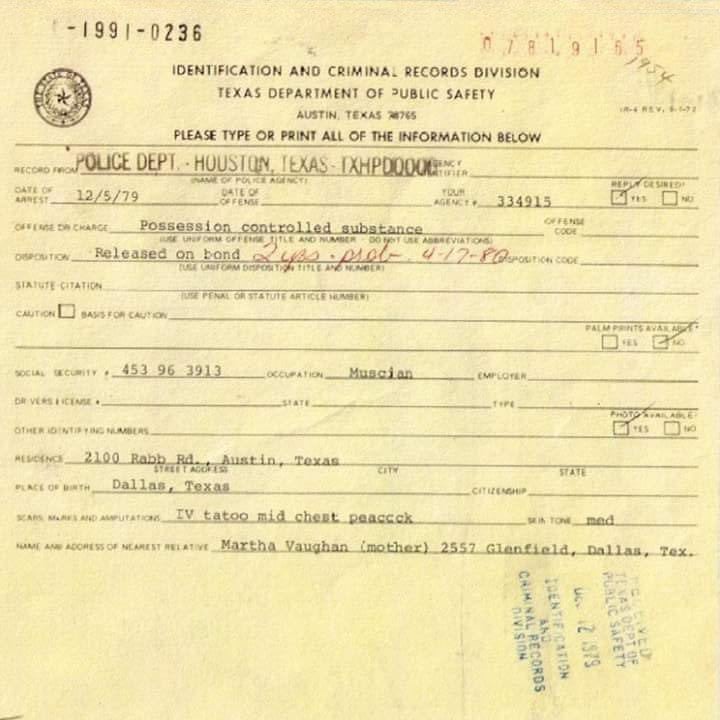 -1991-0236
07819165
1954
IDENTIFICATION AND CRIMINAL RECORDS DIVISION
TEXAS DEPARTMENT OF PUBLIC SAFETY
AUSTIN, TEXAS 78765
IR-4 REV. 9-1-72
PLEASE TYPE OR PRINT ALL OF THE INFORMATION BELOW
RECORD FROM POLICE DEPT. - HOUSTON, TEXAS - TXHPD0000
(NAME OF POLICE AGENCY)
DATE OF ARREST 12/5/79 DATE OF OFFENSE YOUR AGENCY # 334915 REPLY DESIRED? YES NO
OFFENSE OR CHARGE Possession controlled substance OFFENSE CODE
(USE UNIFORM OFFENSE TITLE AND NUMBER - DO NOT USE ABBREVIATIONS)
DISPOSITION Released on bond 2 yrs. prob. 4-17-80 DISPOSITION CODE
(USE UNIFORM DISPOSITION TITLE AND NUMBER)
STATUTE CITATION
(USE PENAL OR STATUTE ARTICLE NUMBER)
CAUTION BASIS FOR CAUTION
PALM PRINTS AVAILABLE?
YES NO
SOCIAL SECURITY # 453 96 3913 OCCUPATION Muscian EMPLOYER
DRIVERS LICENSE # STATE TYPE
PHOTO AVAILABLE?
OTHER IDENTIFYING NUMBERS YES NO
RESIDENCE 2100 Rabb Rd., Austin, Texas
STREET ADDRESS CITY STATE
PLACE OF BIRTH Dallas, Texas CITIZENSHIP
SCARS, MARKS AND AMPUTATIONS IV tatoo mid chest peacock SKIN TONE med
NAME AND ADDRESS OF NEAREST RELATIVE Martha Vaughan (mother) 2557 Glenfield, Dallas, Tex.
RECEIVED
TEXAS DEPT OF
PUBLIC SAFETY
12 1979
IDENTIFICATION
AND
CRIMINAL RECORDS
DIVISION